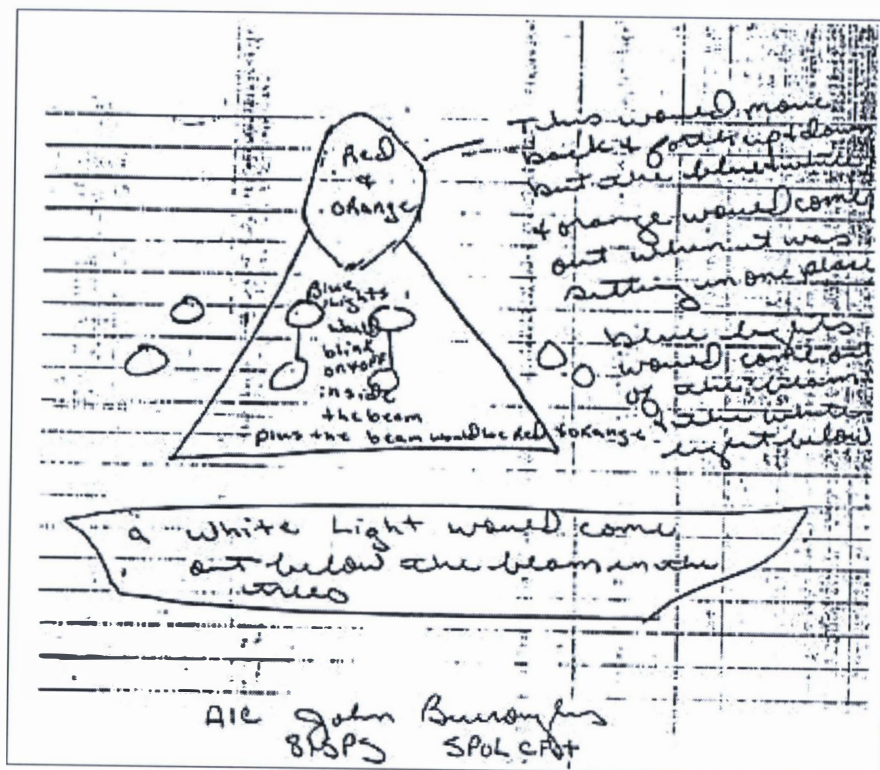 Red
+
orange
This would move
back + forth, up + down
but the blue white
+ orange would come
out when it was
setting in one place
Blue
Lights
would
blink
on+off
inside
the beam
plus the beam would be Red + orange
blue lights
would come out
of the beam
+ the white
light below
a white Light would come
out below the beam in the
trees
A1C John Burroughs
81SPS